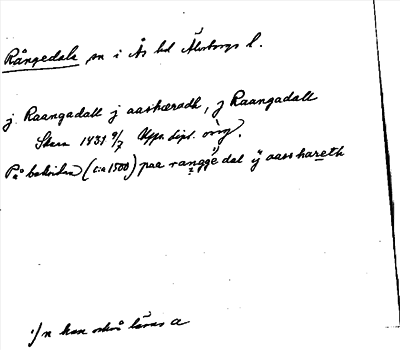 Rångedala sn i Ås hd Älvsborgs l.
j Raangadall j aashæradh, j Raangadall
Skara 1431 9/7 Uppr. dipl. orig.
På baksidan (c:a 1500) paa ranggédal ÿ aasshareth
1/ n kan också läsas a